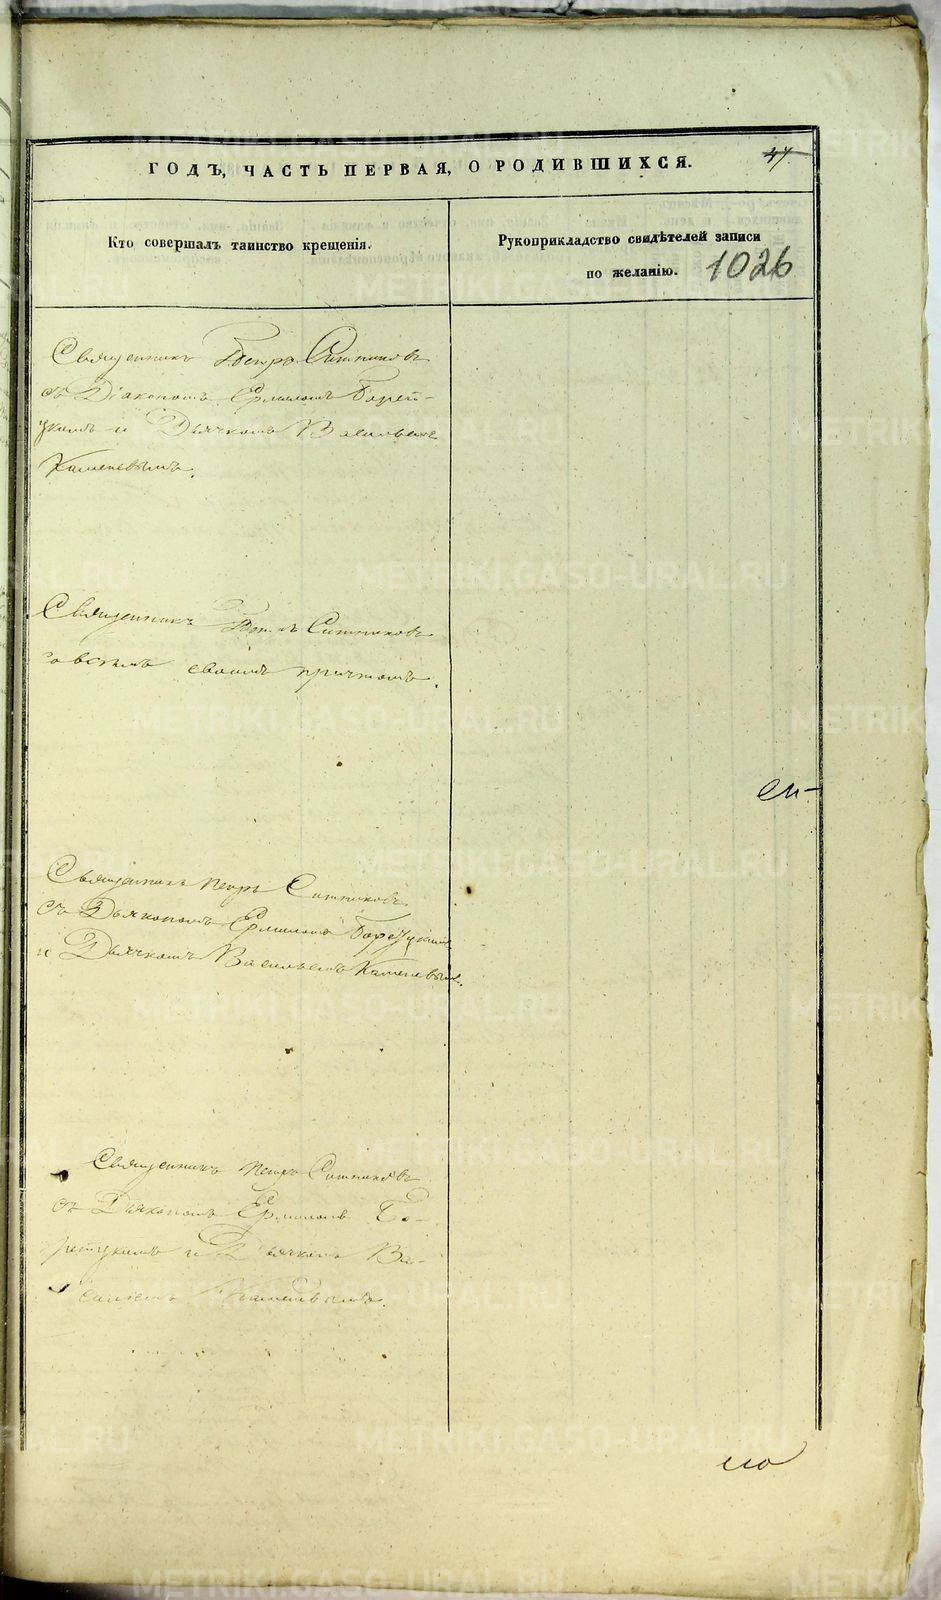 ГОДЪ, ЧАСТЬ ПЕРВАЯ, О РОДИВШИХСЯ.
47
Кто совершалъ таинство крещенія.
Рукоприкладство свидѣтелей записи
по желанію. 1026
Священникъ Петръ Ситниковъ
съ Діакономъ Ермиломъ Борет-
цкимъ и Дьячкомъ Васильемъ
Каменевымъ.
Священникъ Петръ Ситниковъ
со всѣмъ своимъ причтомъ.
Священникъ Петръ Ситниковъ
съ Дьякономъ Ермиломъ Борецкимъ
и Дьячкомъ Васильемъ Каменевымъ.
Священникъ Петръ Ситниковъ
съ Дьякономъ Ермиломъ Бо-
ретцкимъ и Дьячкомъ Ва-
сильемъ Каменевымъ.
METRIKI.GASO-URAL.RU